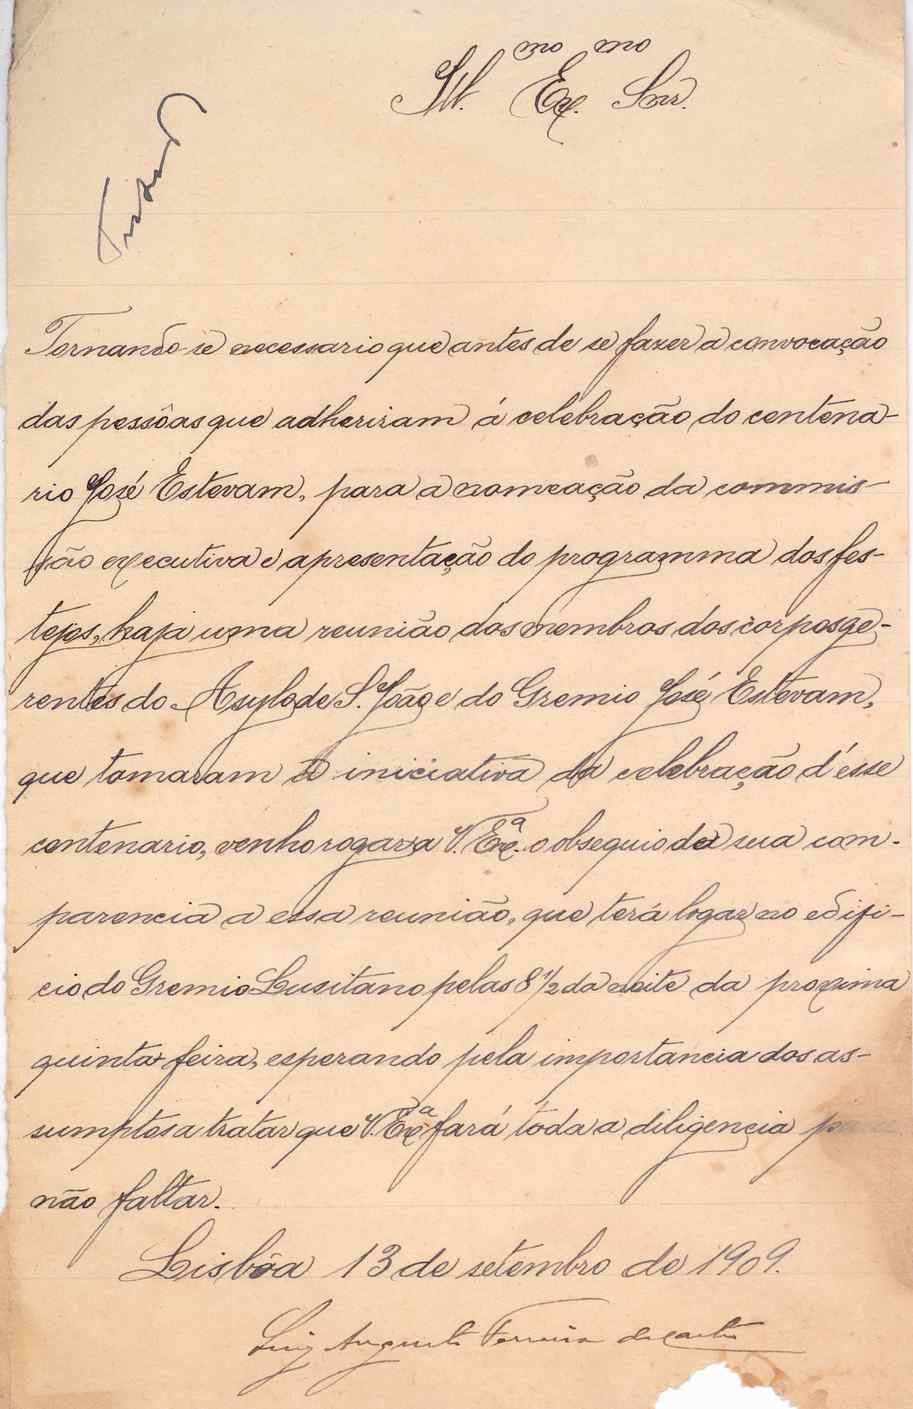 Ill.mo Ex.mo Snr.
Tornando-se necessario que antes de se fazer a convocação
das pessôas que adheriram á celebração do centena-
rio José Estevam, para a nomeação da commis-
são executiva e apresentação do programma dos fes-
tejos, haja uma reunião dos membros dos corpos ge-
rentes do Asylo de S. João e do Gremio José Estevam,
que tomaram a iniciativa da celebração d'ésse
centenario, venho rogar a V. Ex.ª o obsequio da sua com-
parencia a essa reunião, que terá logar no edifi-
cio do Gremio Lusitano pelas 8 1/2 da noite da proxima
quinta feira, esperando pela importancia dos as-
sumptos a tratar que V. Exª fará toda a diligencia
não faltar.
Lisbôa 13 de setembro de 1909.
Luiz Augusto Ferreira de Castro